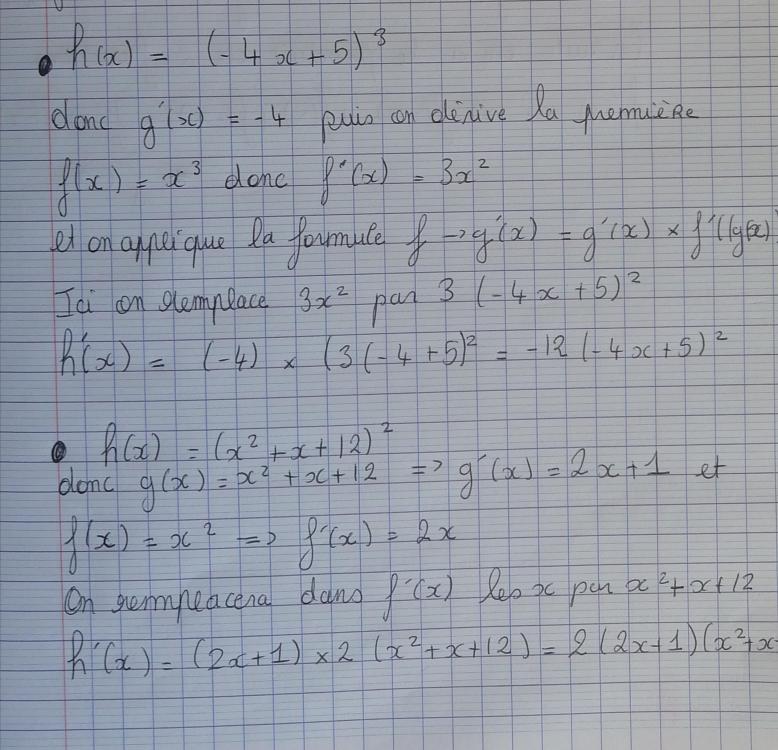 • h(x) = (-4x+5)³
donc g'(x) = -4 puis on dérive la première
f(x) = x³ donc f'(x) = 3x²
et on applique la formule f→g'(x) = g'(x) × f'((g(x)
Ici on remplace 3x² par 3 (-4x+5)²
h'(x) = (-4) × (3(-4+5)² = -12(-4x+5)²
• h(x) = (x²+x+12)²
donc g(x) = x²+x+12 => g'(x) = 2x+1 et
f(x) = x² => f'(x) = 2x
On remplacera dans f'(x) les x par x²+x+12
h'(x) = (2x+1)×2 (x²+x+12) = 2(2x+1)(x²+x